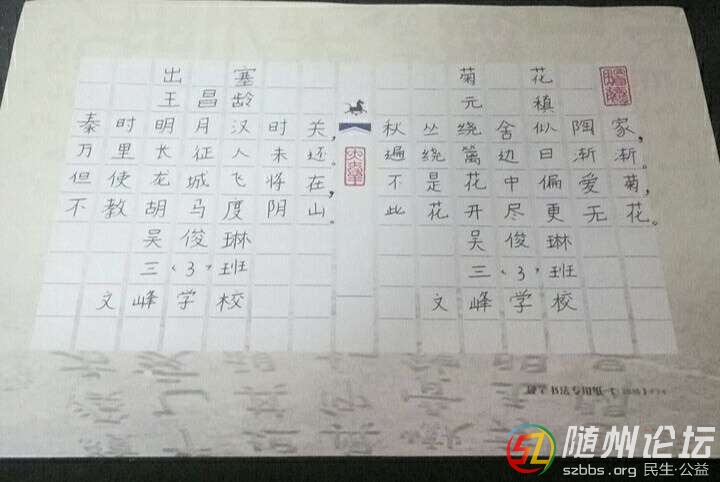 出塞
王昌龄
秦时明月汉时关，
万里长征人未还。
但使龙城飞将在，
不教胡马度阴山。
吴俊琳
三〈3〉班
文峰学校
菊花
元稹
秋丛绕舍似陶家，
遍绕篱边日渐渐。
不是花中偏爱菊，
此花开尽更无花。
吴俊琳
三〈3〉班
文峰学校
随州论坛
szbbs.org 民生·公益